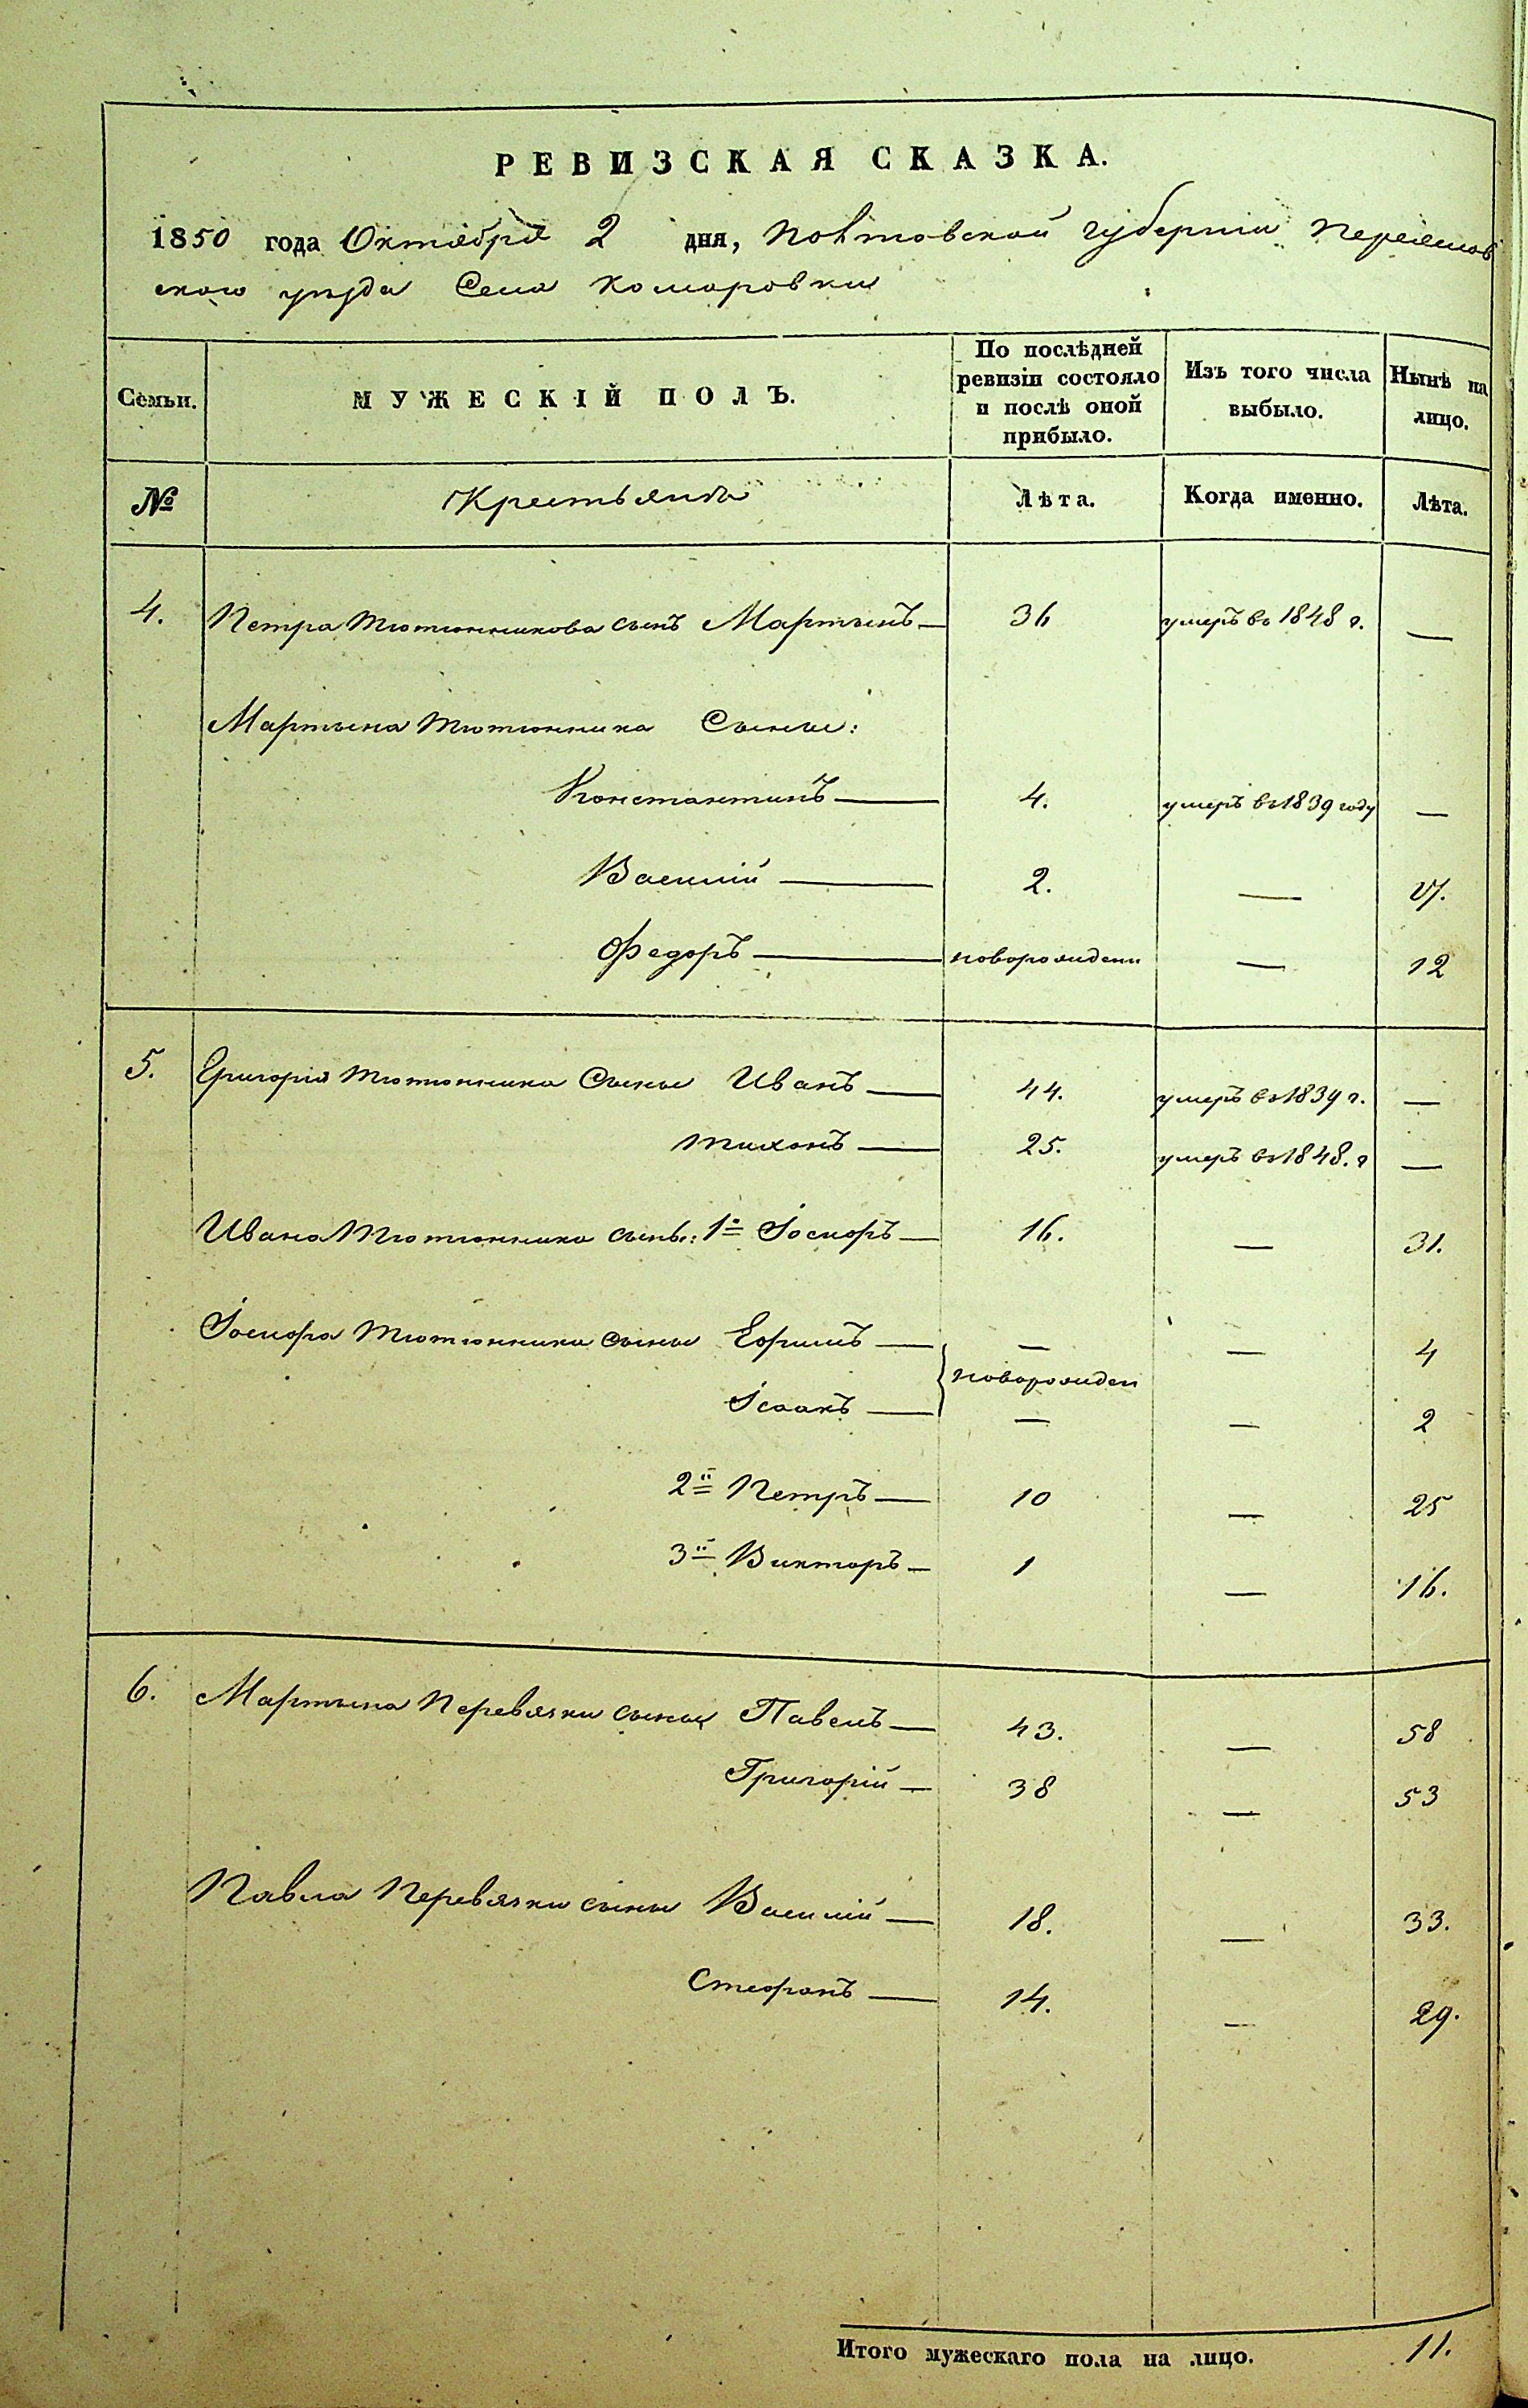 РЕВИЗСКАЯ СКАЗКА.
1850 года Октября 2 дня, Полтавской губерніи Переяслов
ского уѣзда Села Комаровки
Семьи. МУЖЕСКІЙ ПОЛЪ. По послѣдней ревизіи состояло и послѣ оной прибыло. Изъ того числа выбыло. Нынѣ на лицо.
№ Крестьянъ Лѣта. Когда именно. Лѣта.
4. Петра Тютюнникова сынъ Мартынъ — 36 умеръ въ 1848 г. —
Мартына Тютюнника Сыны:
Константинъ — 4. умеръ въ 1839 году —
Василій — 2. — 17.
Федоръ — новорожденн — 12
5. Григорія Тютюнника Сыны Иванъ — 44. умеръ въ 1839 г. —
Тихонъ — 25. умеръ въ 1848. г —
Ивана Тютюнника сынъ: 1й Іосифъ — 16. — 31.
Іосифа Тютюнника сыны Ефимъ — — — 4
новорожден
Ісаакъ — — — 2
2й Петръ — 10 — 25
3й Викторъ — 1 — 16.
6. Мартына Перевязки сыны Павелъ — 43. — 58
Григорій — 38 — 53
Павла Перевязки сыны Василій — 18. — 33.
Стефанъ — 14. — 29.
Итого мужескаго пола на лицо. 11.